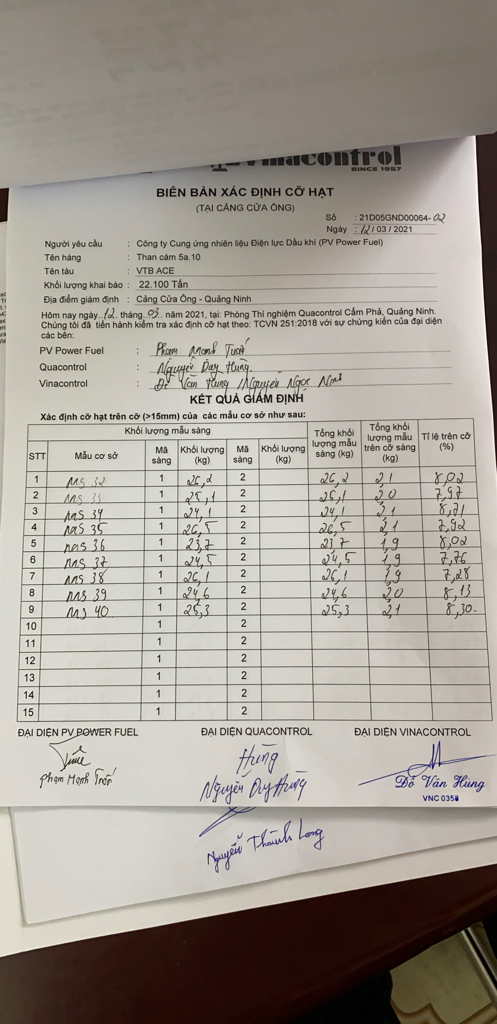 Vinacontrol
SINCE 1957
BIÊN BẢN XÁC ĐỊNH CỠ HẠT
(TẠI CẢNG CỬA ÔNG)
Số : 21D05GND00064-02
Ngày : 12/03/2021
Người yêu cầu : Công ty Cung ứng nhiên liệu Điện lực Dầu khí (PV Power Fuel)
Tên hàng : Than cám 5a.10
Tên tàu : VTB ACE
Khối lượng khai báo : 22.100 Tấn
Địa điểm giám định : Cảng Cửa Ông - Quảng Ninh
Hôm nay ngày..12. tháng..03.. năm 2021, tại: Phòng Thí nghiệm Quacontrol Cẩm Phả, Quảng Ninh.
Chúng tôi đã tiến hành kiểm tra xác định cỡ hạt theo: TCVN 251:2018 với sự chứng kiến của đại diện
các bên:
PV Power Fuel : Phạm Mạnh
Quacontrol : Nguyễn Duy Hùng
Vinacontrol : Đỗ Văn Hưng /Nguyễn Ngọc
KẾT QUẢ GIÁM ĐỊNH
Xác định cỡ hạt trên cỡ (>15mm) của các mẫu cơ sở như sau:
Khối lượng mẫu sàng
STT Mẫu cơ sở Mã sàng Khối lượng (kg) Mã sàng Khối lượng (kg) Tổng khối lượng mẫu sàng (kg) Tổng khối lượng mẫu trên cỡ sàng (kg) Tỉ lệ trên cỡ (%)
1 MS 32 1 26,2 2 26,2 2,1 8,02
2 MS 33 1 25,1 2 25,1 2,0 7,97
3 MS 34 1 24,1 2 24,1 2,1 8,71
4 MS 35 1 26,5 2 26,5 2,1 7,92
5 MS 36 1 23,7 2 23,7 1,9 8,02
6 MS 37 1 24,5 2 24,5 1,9 7,76
7 MS 38 1 26,1 2 26,1 1,9 7,28
8 MS 39 1 24,6 2 24,6 2,0 8,13
9 MS 40 1 25,3 2 25,3 2,1 8,30-
10 1 2
11 1 2
12 1 2
13 1 2
14 1 2
15 1 2
ĐẠI DIỆN PV POWER FUEL ĐẠI DIỆN QUACONTROL ĐẠI DIỆN VINACONTROL
Hùng
Phạm Mạnh Nguyễn Duy Hùng Đỗ Văn Hưng
VNC 0358
Nguyễn Thành Long